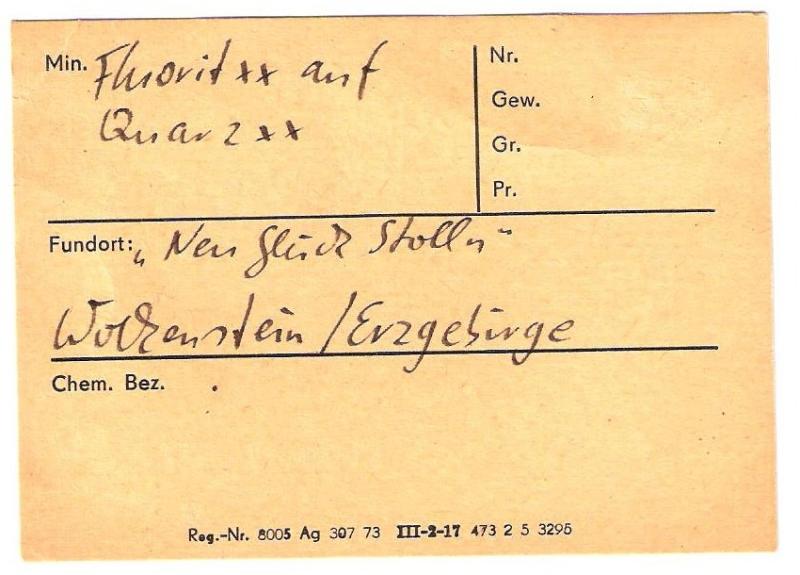 Min. Fluorit xx auf
Quarz xx
Nr.
Gew.
Gr.
Pr.
Fundort: „Neu Glück Stolln“
Wolkenstein / Erzgebirge
Chem. Bez.
Reg.-Nr. 8005 Ag 307 73 III-2-17 473 2 5 3295